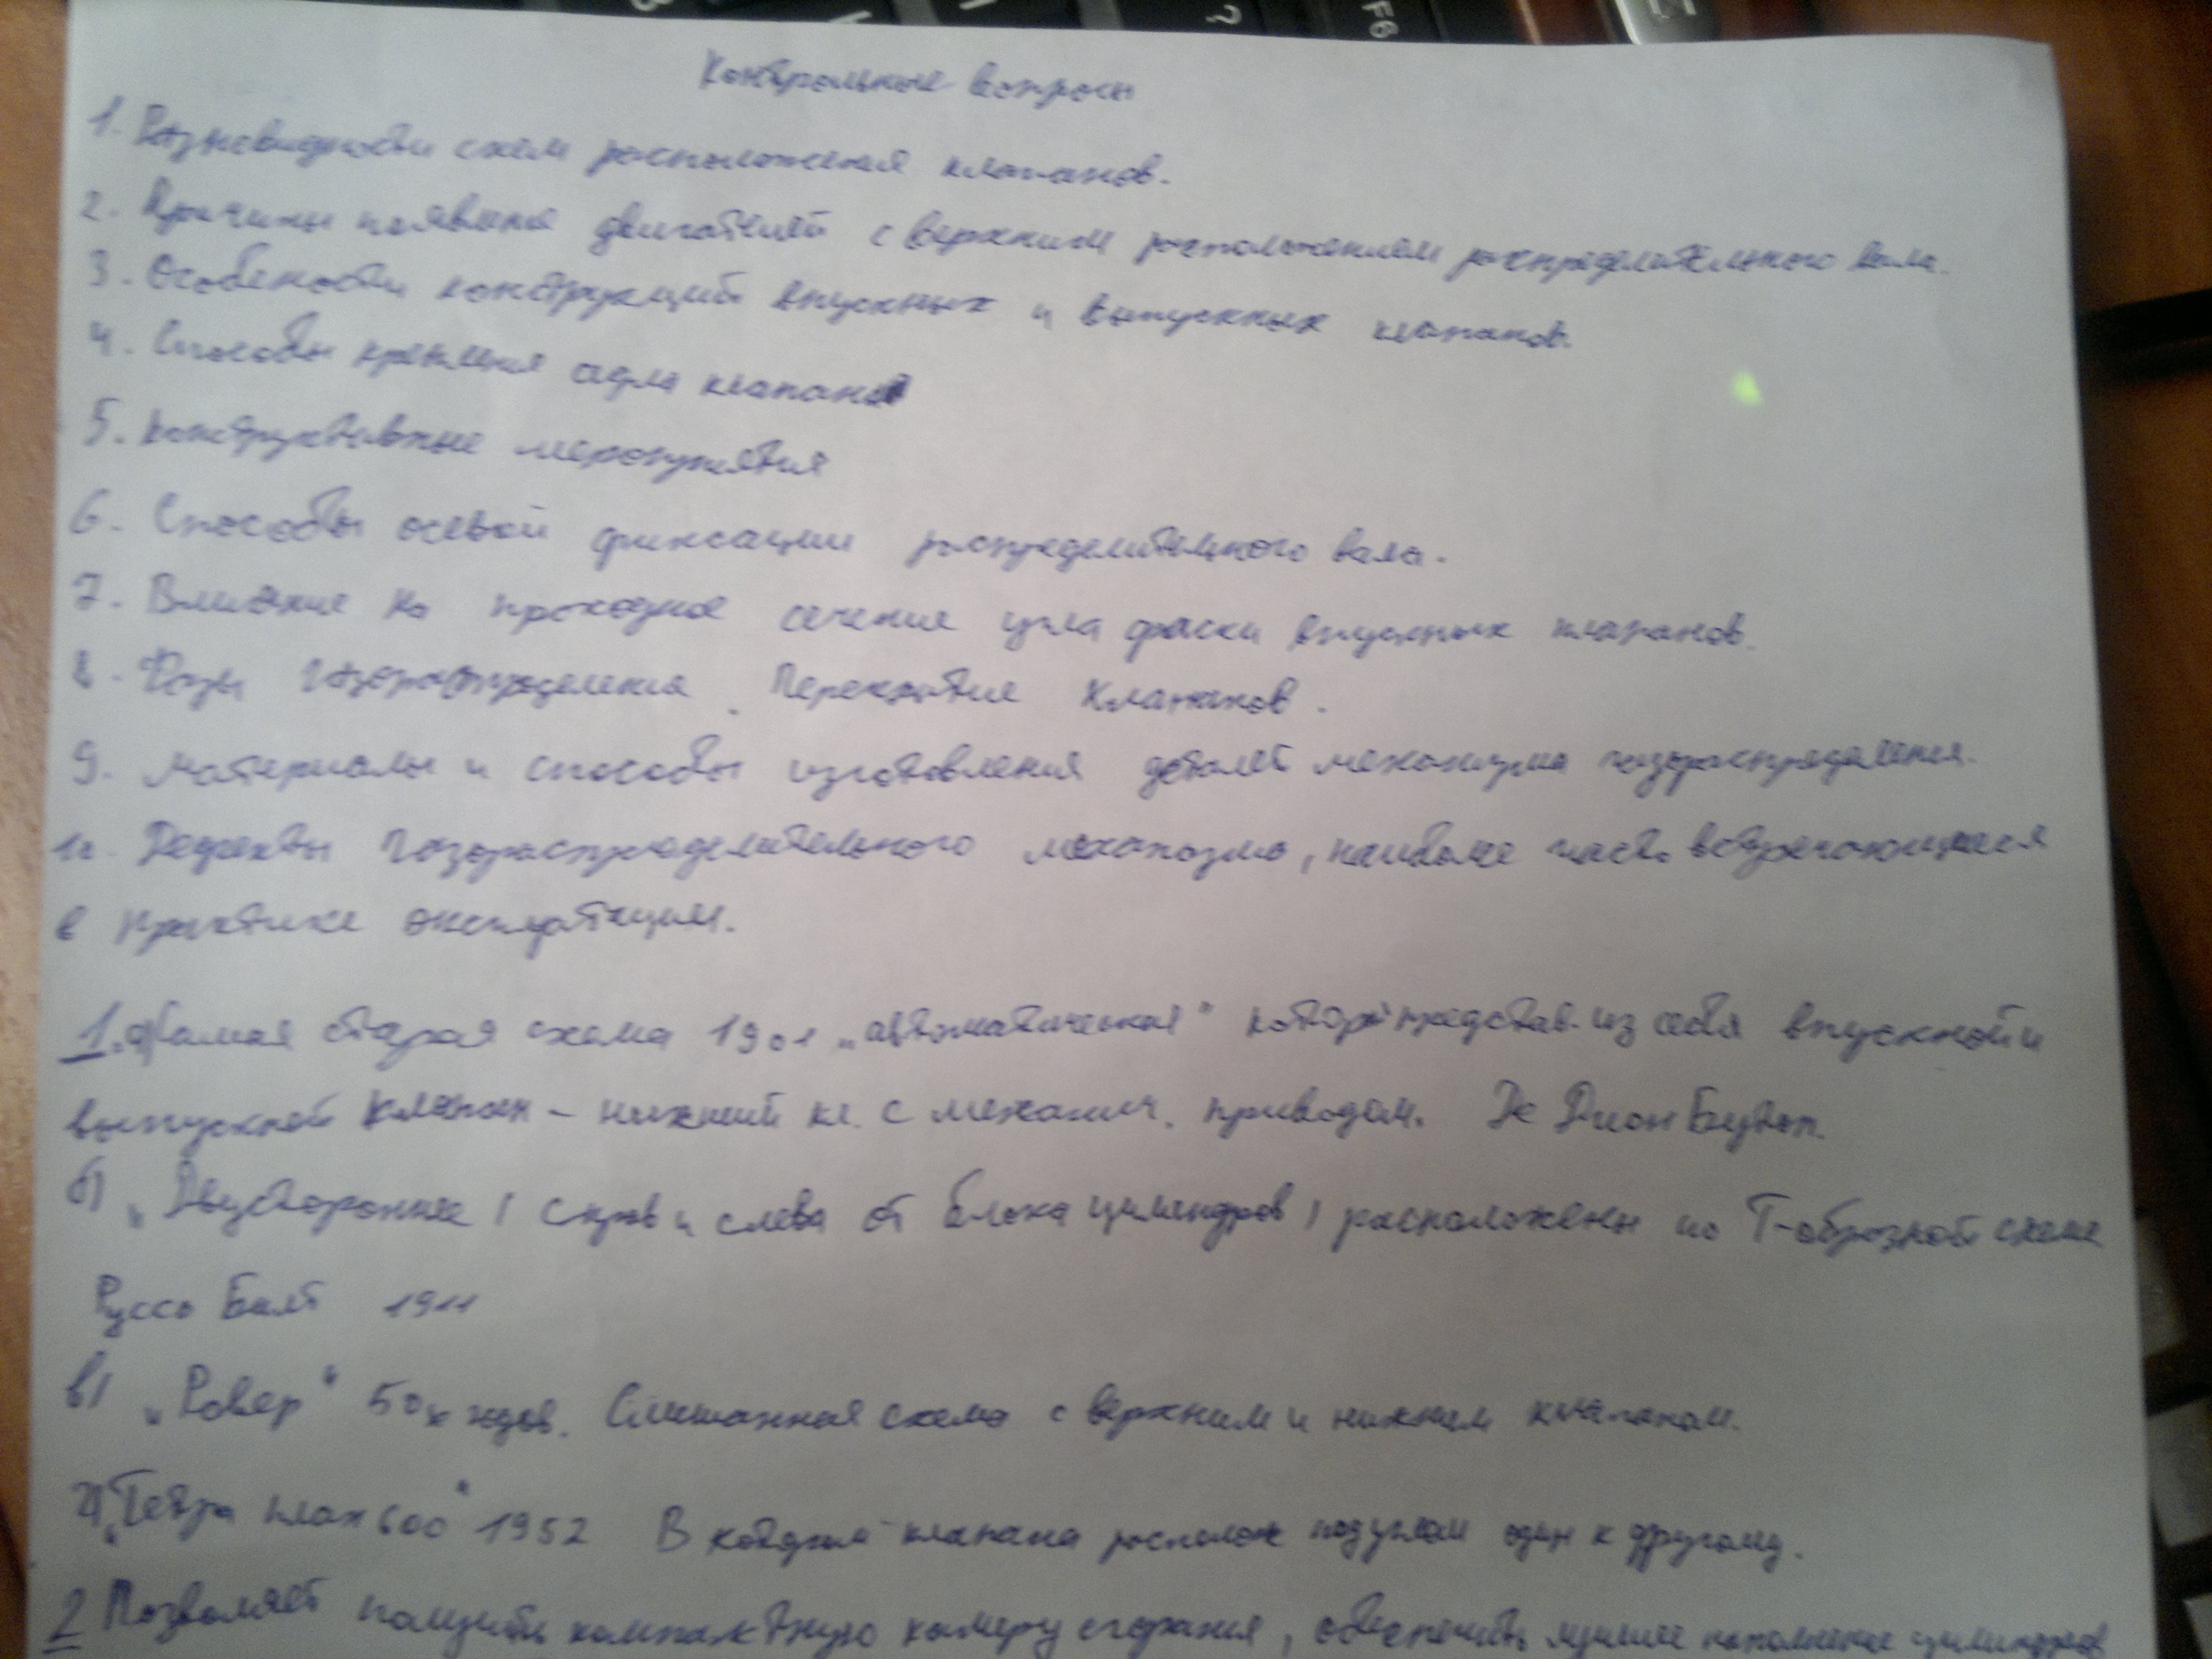 Контрольные вопросы
1. Разновидности схем расположения клапанов.
2. Причины появления двигателей с верхним расположением распределительного вала.
3. Особености конструкций впускных и выпускных клапанов.
4. Способы крепления седла клапана
5. Конструктивные мероприятия
6. Способы осевой фиксации распределительного вала.
7. Влияние на проходное сечение угла фаски впускных клапанов.
8. Фазы газораспределения. Перекрытие клапанов.
9. Материалы и способы изготовления деталей механизма газораспределения.
10. Дефекты газораспределительного механизма, наиболее часто встречающиеся
в практике эксплуатации.
1. а) Самая старая схема 1901 „автоматическая" которы представ. из себя впускной и
выпускной клапан – нижний кл. с механич. приводом. Де Дион Бутон.
б) „Двустороннее (справ и слева от блока цилиндров) расположены по Т-образной схеме
Руссо Балт 1911
в) „Ровер" 50х годов. Смешанная схема с верхним и нижнем клапаном.
г) „Татра план 600" 1952 В которой клапана располож под углом один к другому.
2 Позволяет получить компактную камеру сгорания, обеспечить лучшее наполнение цилиндров